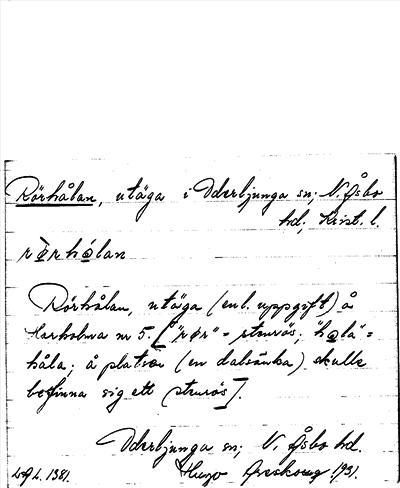 Rörhålan, utäga i Oderljunga sn; N. Åsbo
hd; Krist. l.
rö̀rhålan
Rörhålan, utäga (enl. uppgift) å
Harholma nr 5. ["rør" = stenrös; "hålå" =
håla; å platsen (en dalsänka) skulle
befinna sig ett stenrös].
Oderljunga sn; N. Åsbo hd.
LAL. 1381. Hugo Areskoug 1931.